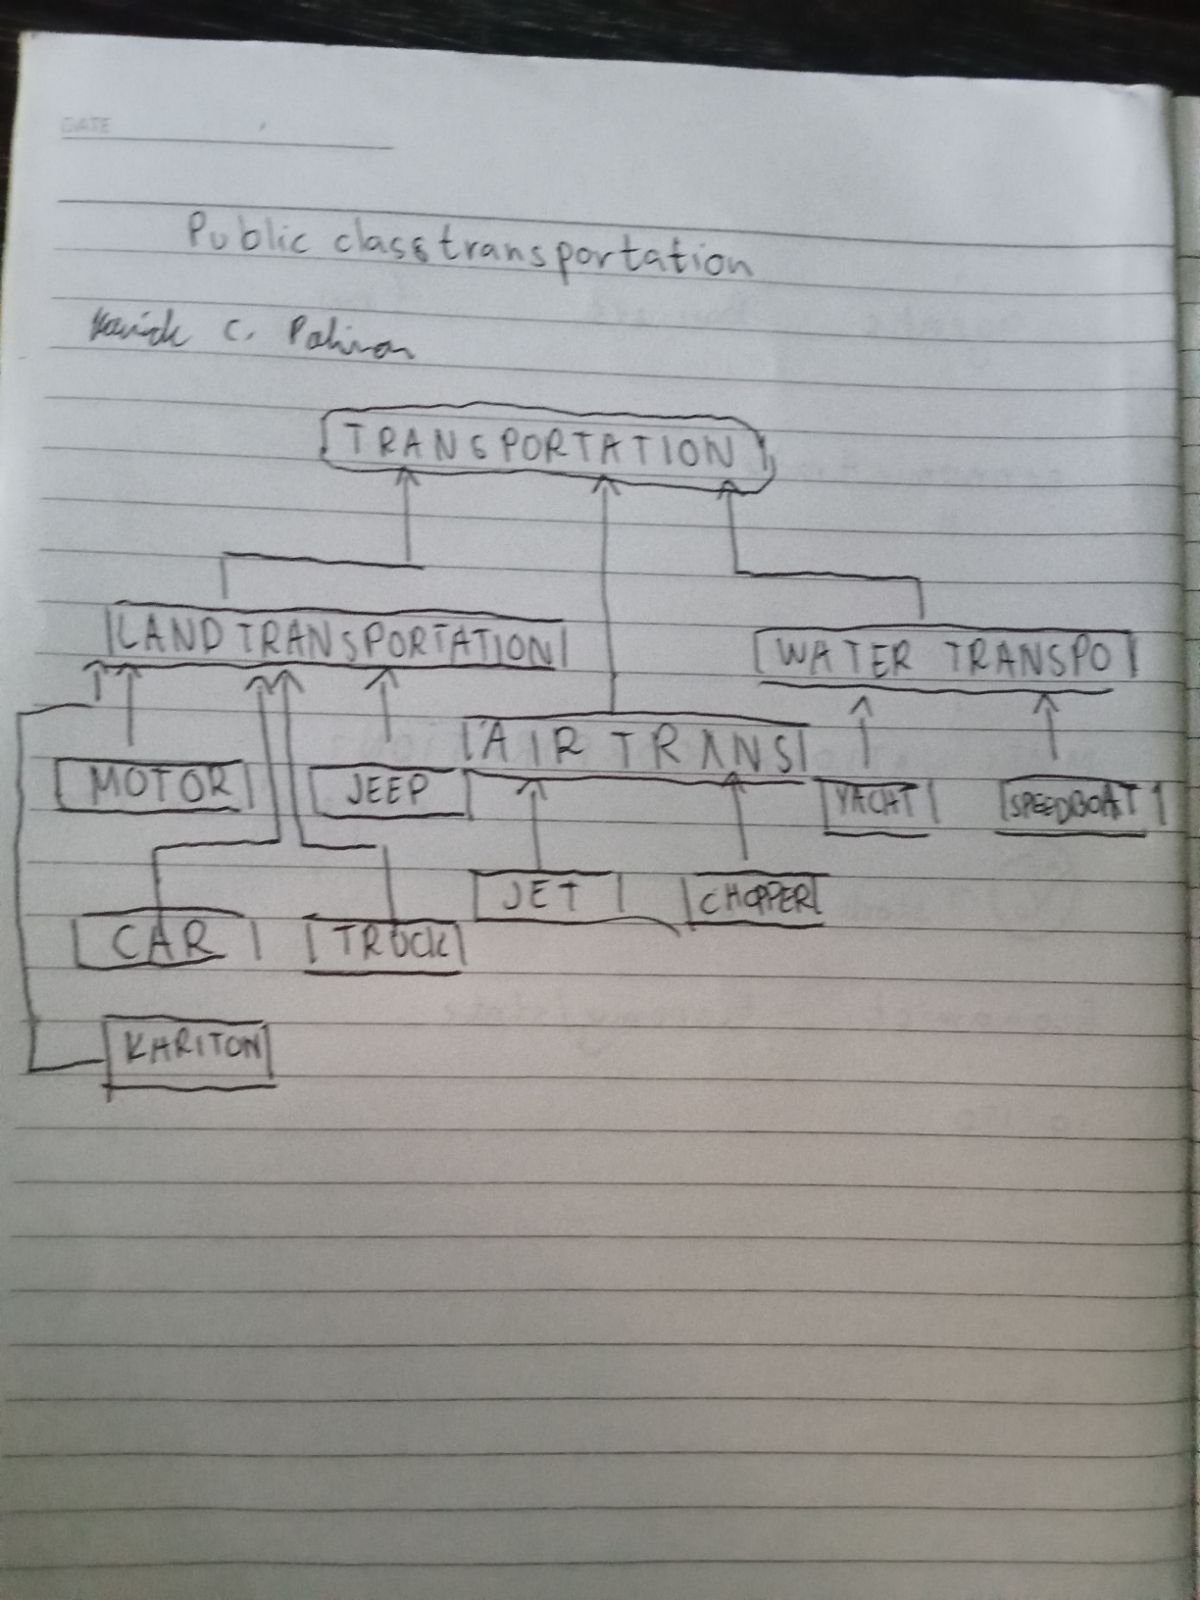 DATE
Public class transportation
C.
TRANSPORTATION
LAND TRANSPORTATION
WATER TRANSPO
AIR TRANS
MOTOR
JEEP
YACHT
SPEEDBOAT
JET
CHOPPER
CAR
TRUCK
KARITON